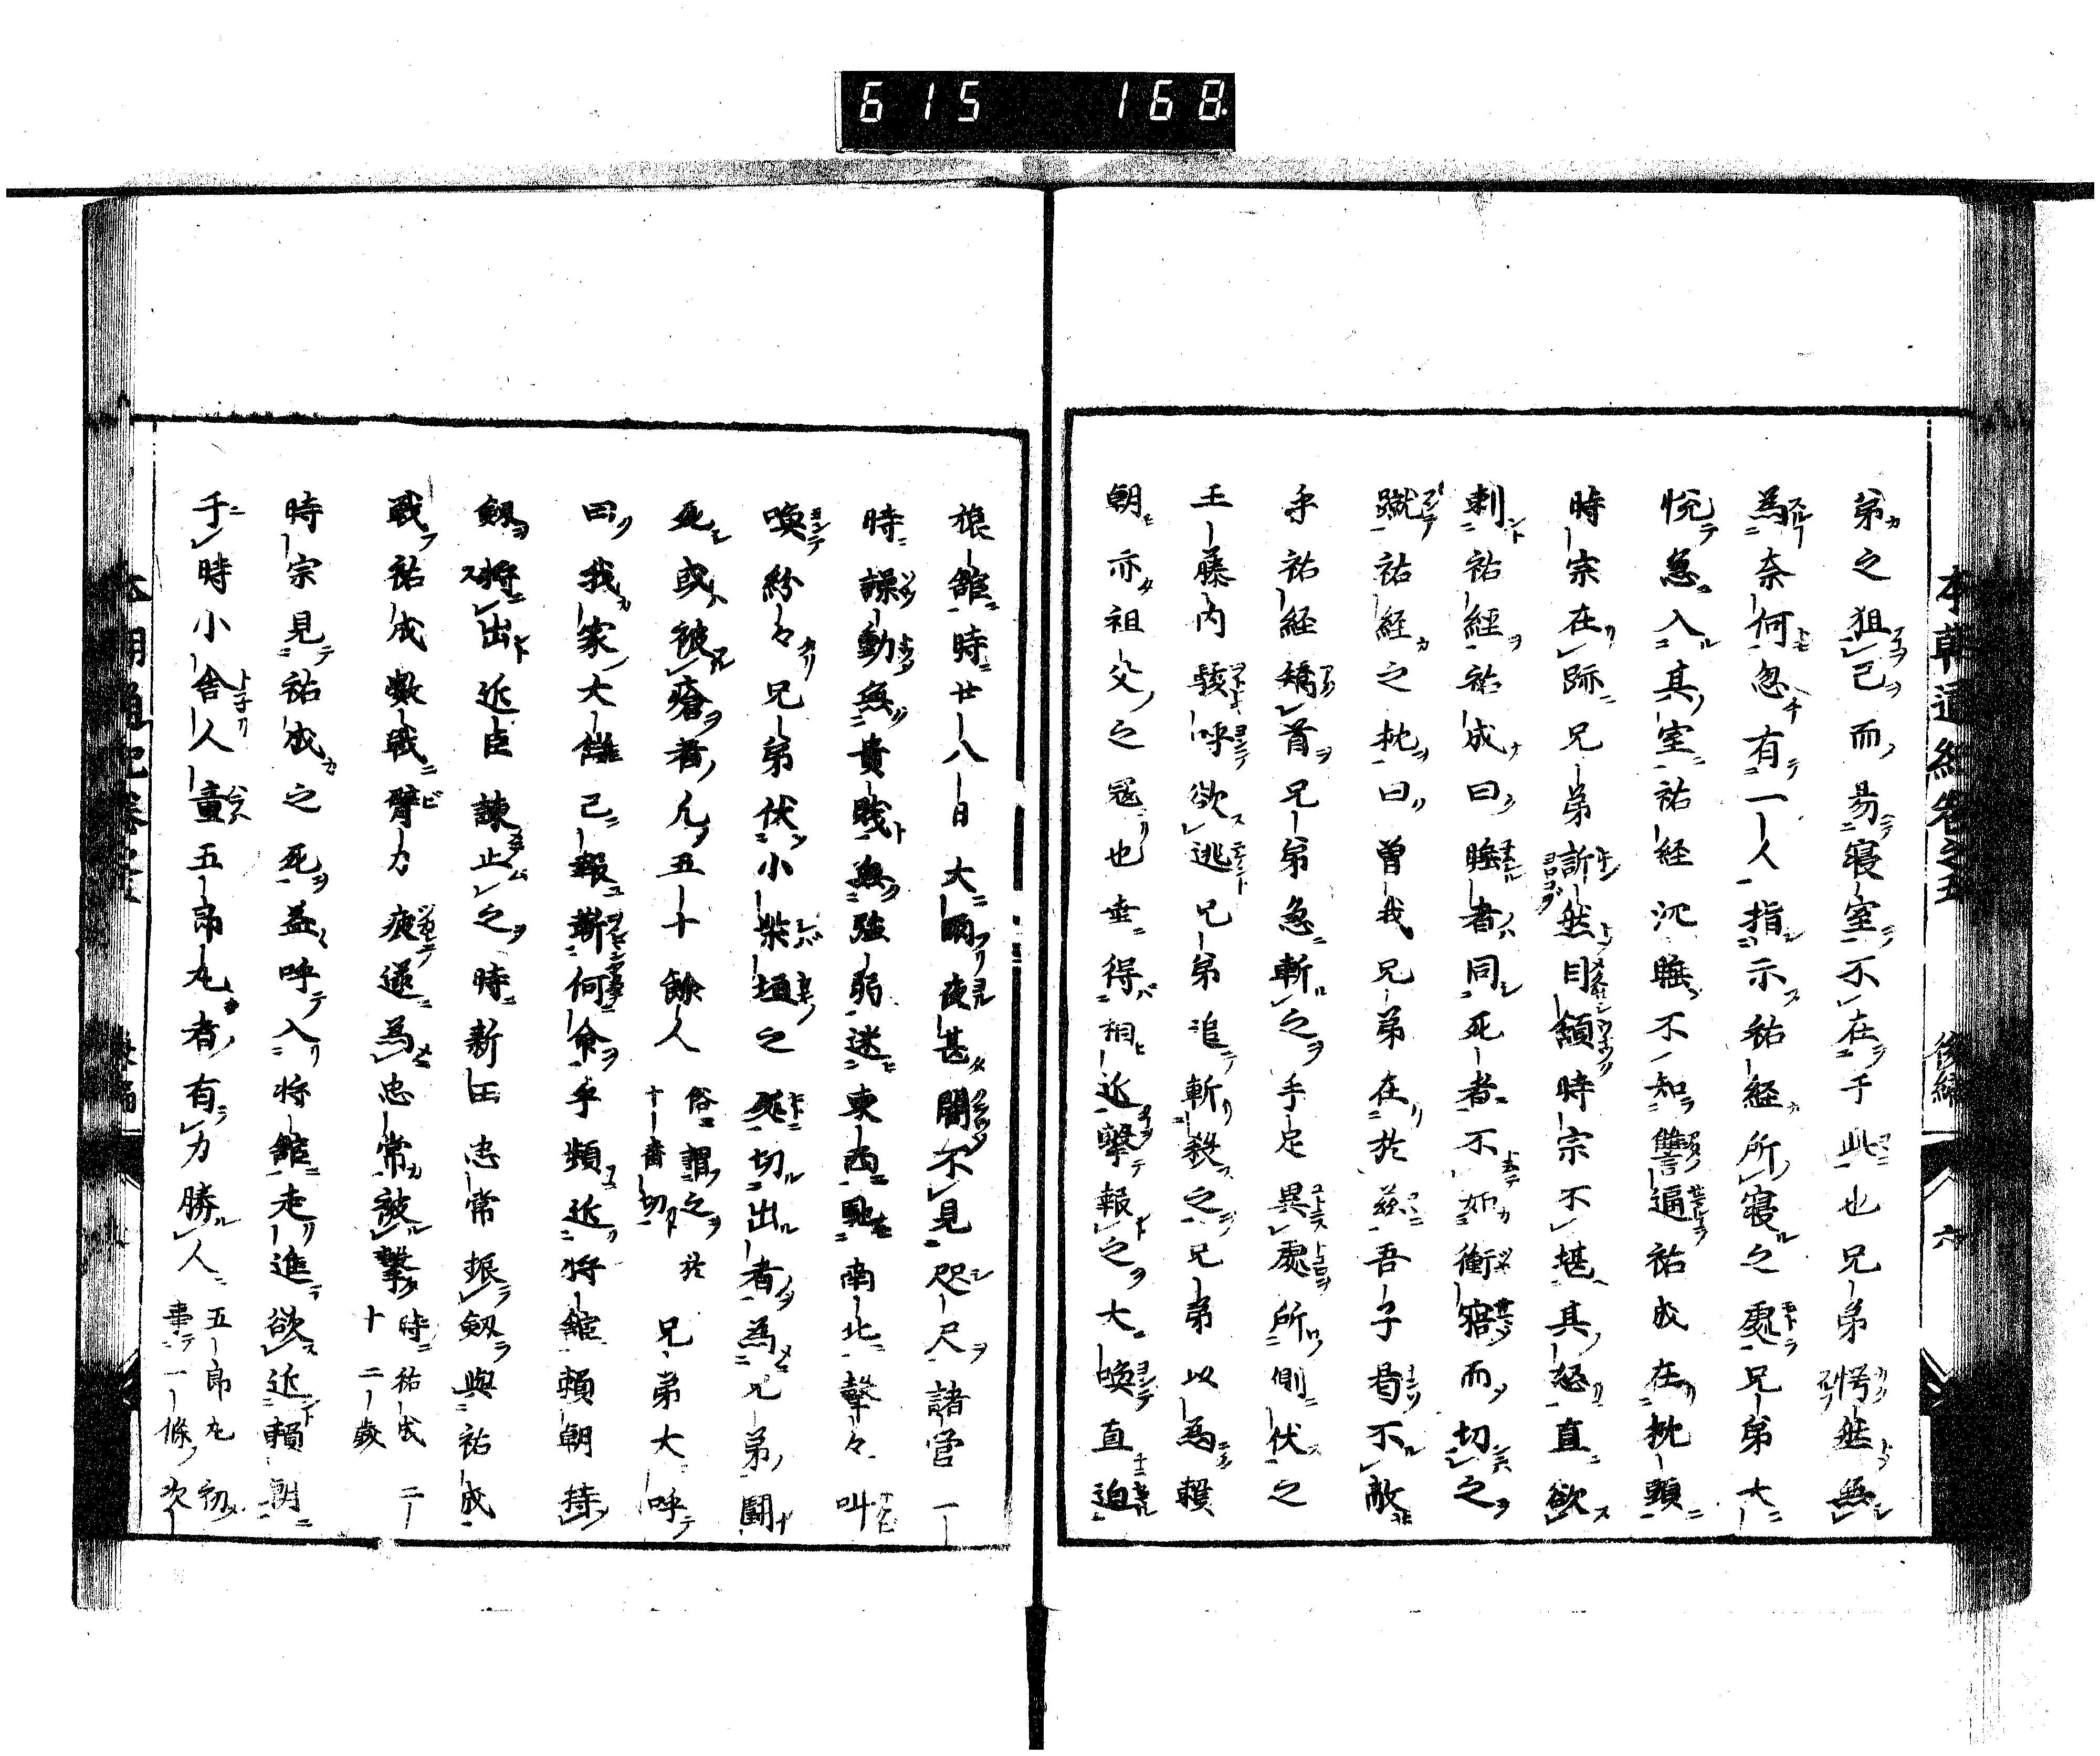 615 168
本朝通紀卷之五 後編 六
弟之狙己而易寝室不在于此也兄弟愕然無
為奈何忽有一人指示祐経所寝之處兄弟大
悦急入其室祐経沉睡不知讐逼祐成在枕頭
時宗在跡兄弟訢然目額時宗不堪其怒直欲
刺祐經祐成曰睡者同死者不如衝寤而切之
蹴祐経之枕曰曽我兄弟在於茲吾子曷不敵
乎祐経矯首兄弟急斬之手足異處所側伏之
王藤内駭呼欲逃兄弟追斬殺之兄弟以為頼
朝亦祖父之冦也幸得相近撃報之大喚直迫
旅館時廿八日大雨夜甚闇不見咫尺諸営一
時譟動無貴賤無強弱迷東西馳南北聲々叫
喚紛々兄弟伏小柴垣之 切出者為兄弟闘
死或被瘡者凡五十餘人 俗謂之十番切 於 兄弟大呼
曰我家大讎已報斯何命乎頻近将舘頼朝持
剱将出近臣諌止之時新田忠常振剱與祐成
戰祐成數戰臂力疲遂為忠常被撃 時祐成二十二歳
時宗見祐成之死益呼入将舘走進欲近頼朝
于時小舎人童五郎丸者有力勝人 五郎丸初事一條次